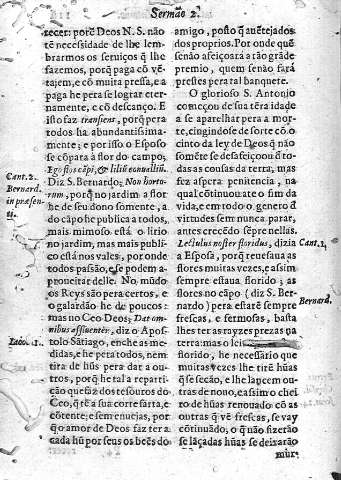 Sermão 2.
recer: porq̃ Deos N. S. não
tẽ necessidade de lhe lem-
brarmos os seruiços q̃ lhe
fazemos, porq̃ paga cõ vẽ-
tajem, e cõ muita pressa, e a
paga he pera se lograr eter-
namente, e cõ descanço. E
isto faz transient, porq̃ pera
todos ha abundantissima-
mente; e por isso o Esposo
se cõpara â flor do campo;
Ego flos cãpi, & liliũ conualliũ.
Cant. 2.
Bernard.
in præsen-
ti.
Diz S. Bernardo; Non horto-
rum, porq̃ no jardim a flor
he de seu dono somente, a
do cãpo he publica a todos,
mais mimoso està o lirio
no jardim, mas mais publi-
co està nos vales, por onde
todos passão, e se podem a-
proueitar delle. No mũdo
os Reys são pera certos, e
o galardão he de poucos:
mas no Ceo Deos; Dat om-
nibus affluenter, diz o Apos-
Iacob. 1.
tolo Sãtiago, enche as me-
didas, e he pera todos, nem
tira de hũs pera dar a ou-
tros, porq̃ he tal a reparti-
ção que faz dos tesouros do
Ceo, q̃ tẽ a sua corte farta, e
cõtente; e sem enuejas, por
q̃ o amor de Deos faz ter a
cada hũ por seus os beẽs do
amigo, posto q̃ auẽtejados
dos proprios. Por onde quẽ
senão afeiçoarà a tão grãde
premio, quem senão farà
prestes pera tal banquete.
O glorioso S. Antonio
começou de sua tẽra idade
a se aparelhar pera a mor-
te, cingindose de sorte cõ o
cinto da ley de Deos q̃ não
somẽte se desafeiçoou à to-
das as cousas da terra, mas
fez aspera penitencia, na
qual cõtinuou ate o fim da
vida, e em todo o genero d
virtudes sem nunca parar,
antes crecẽdo sẽpre nellas.
Lectulus noster floridus, dizia
Cant. 1.
a Esposa, porq̃ renesaua as
flores muitas vezes, e assim
sempre estaua florido; as
flores no cãpo (diz S. Ber-
Bernard.
nardo) pera estarẽ sempre
frescas, e fermosas, basta
lhes ter as rayzes prezas na
terra: mas o
florido, he necessário que
muitas vezes lhe tirẽ hũas
q̃ se secão, e lhe lancem ou-
tras de nouo, e assim o chei-
ro de hũas renouado cõ as
outras q̃ vẽ frescas, se vay
cõtinuãdo, o q̃ não fizerão
se laçadas hũas se deixarão
mur-